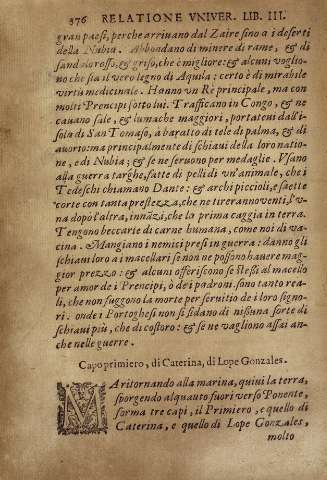 376 RELATIONE VNIVER. LIB. III.
gran paesi, perche arriuano dal Zaire sino a i deserti
della Nubia. Abbondano di minere di rame, & di
sandalo rosso, & griso, che è migliore: & alcuni voglio-
no che sia il vero legno di Aquila: certo è di mirabile
virtù medicinale. Hanno un Rè principale, ma con
molti Prencipi sotto lui. Trafficano in Congo, & ne
cauano sale, & lumache maggiori, portateui dall'i-
sola di San Tomaso, à baratto di tele di palma, & di
auorio: ma principalmente di schiaui della loro natio-
ne, e di Nubia; & se ne seruono per medaglie. Vsano
alla guerra targhe, fatte di pelli di un'animale, che i
Tedeschi chiamano Dante: & archi piccioli, e saette
corte con tanta prestezza, che ne tireranno venti, l'v-
na dopò l'altra, innãzi, che la prima caggia in terra.
Tengono beccarie di carne humana, come noi di va-
cina. Mangiano i nemici presi in guerra: danno gli
schiaui loro a i macellari se non ne possono hauere mag-
gior prezzo: & alcuni offeriscono se stessi al macello
per amor de i Prencipi, ò de i padroni. sono tanto rea-
li, che non fuggono la morte per seruitio de i loro signo-
ri. onde i Portoghesi non si fidano di nissuna sorte di
schiaui più, che di costoro: & se ne vagliono assai an-
che nelle guerre.
Capo primiero, di Caterina, di Lope Gonzales.
MAritornando alla marina, quiui la terra,
sporgendo alquãto fuori verso Ponente,
forma tre capi, il Primiero, e quello di
Caterina, e quello di Lope Gonzales,
molto